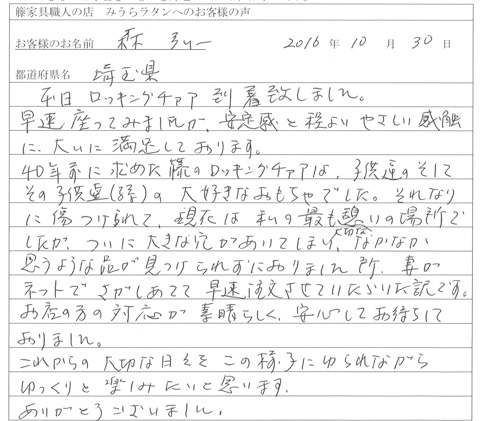 籐家具職人の店 みうらラタンへのお客様の声
お客様のお名前 森 弘一 2016 年 10 月 30 日
都道府県名 埼玉県
本日 ロッキングチェア 到着致しました。
早速 座ってみましたが、安定感と程よい やさしい 感触
に、大いに 満足しております。
40年前に求めた様のロッキングチェアは、子供達のそして
その子供達(孫)の 大好きなおもちゃでした。それなり
に傷つけられて、現在は 私の最も憩いの場所で
したが、ついに大きな穴があいてしまい、なかなか
大切な
思うような品が見つけられずにおりました所、妻が
ネットで さがしあてて 早速注文させていただいた訳です。
お店の方の対応が 素晴らしく、安心してお待ちして
おりました。
これからの 大切な日々を この椅子にゆられながら
ゆっくりと 楽しみたいと思います。
ありがとうございました。